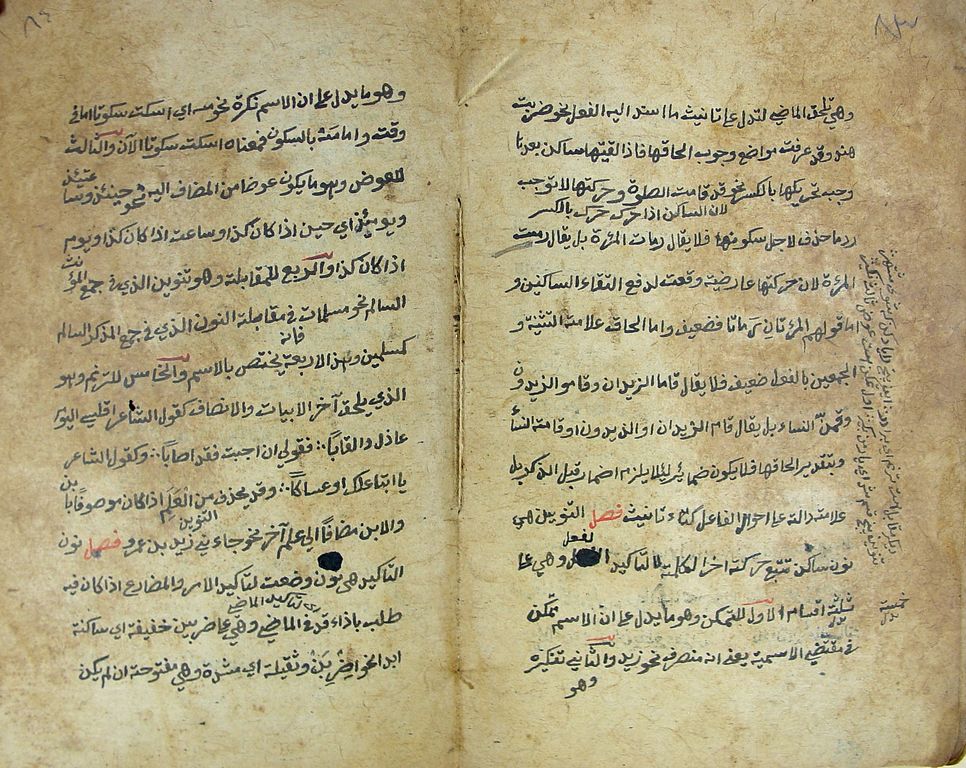 وهي تلحق الماضي لتدل على تانيث ما اسند اليه الفعل نحو ضربت
هند وقد عرفت مواضع وجوب الحاقها فاذا لقيتها ساكن بعدها
وجب تحريكها بالكسر نحو قد قامت الصلوة وحركتها لا توجب
لان الساكن اذا حرك حرك بالكسر
رد ما حذف لاجل سكونها فلا يقال رمات المرءة بل يقال رمت
المرءة لان حركتها عارضية وقعت لدفع التقاء الساكنين و
اما قولهم المرءتان رماتا فضعيف واما الحاق علامة التثنية و
الجمعين بالفعل ضعيف فلا يقال قاما الزيدان وقاموا الزيدون
وقمن النساء بل يقال قام الزيدان او الزيدون او قامت النساء
وبتقدير الحاقها فلا يكون ضمائر لئلا يلزم اضمار قبل الذكر بل
علامة دالة على احوال الفاعل كتاء تانيث فصل التنوين هي
نون ساكن تتبع حركة اخر الكلمة لا لتاكيد الفعل وهي على
لفعل
ثلثة اقسام الاول للتمكن وهو ما يدل على ان الاسم تمكن
في مقتضي الاسمية يعني انه منصرف نحو زيد والثاني تنكيره
وهو
وهو ما يدل على ان الاسم نكرة نحو صه اي اسكت سكوتا ما في
وقت واما صه بالسكون فمعناه اسكت سكوتا الآن والثالث
للعوض وهو ما يكون عوضا من المضاف اليه نحو حينئذ وساعتئذ
ويومئذ اي حين اذا كان كذا وساعت اذا كان كذا ويوم
اذا كان كذا والرابع للمقابلة وهو تنوين الذي في جمع المؤنث
السالم نحو مسلمات في مقابلة النون الذي في جمع المذكر السالم
فانه
كمسلمين وهذ الاربعة يختص بالاسم والخامس للترنم وهو
الذي يلحق آخر الابيات والانصاف كقول الشاعر اقلي اللوم
عاذل والقابا فقولي ان اجبت فقد اصابا وكقول الشاعر
يا ابتا علك او عساكا وقد يحذف من العلم اذا كان موصوفا بابن
التنوين
والابن مضافا الى علم آخر نحو جاءني زيد بن عمرو فصل نون
التاكيد هي نون وضعت لتاكيد الامر والمضارع اذا كان فيه
تاكيد الماضي
طلب باذاء قد في الماضي وهي على ضربين خفيفة اي ساكنة
ابدا نحو اضربن وثقيلة اي مشددة وهي مفتوحة ان لم يكن